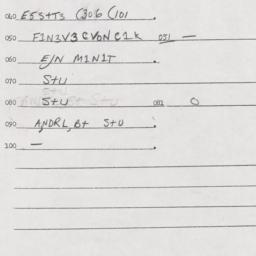 040 E5S+T3 (306 (101
050 F1N3V3 C VON C1K 051 —
060 E/N M1N1T
070 S+U
080 S+U 081 O
090 A,NDRL,B+ S+U
100 —